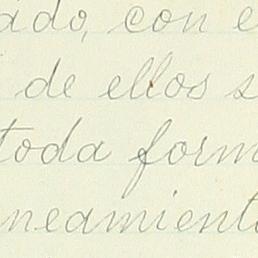 ado, con e
de ellos s
toda form
neamient